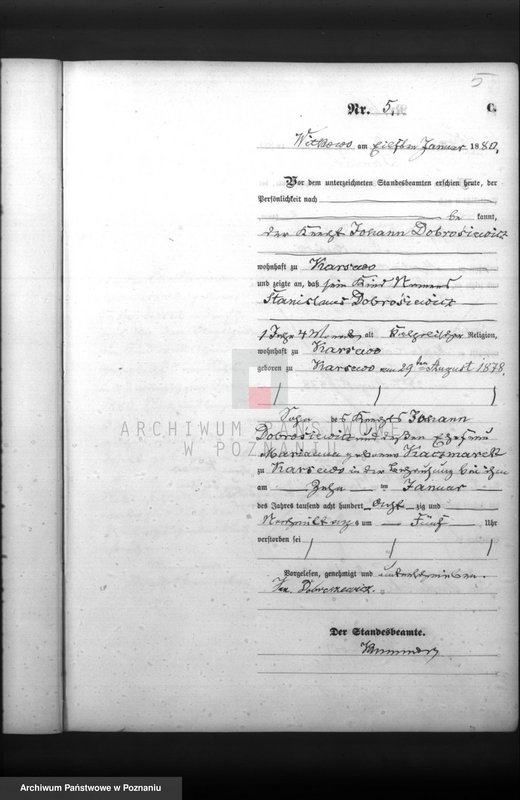 5
Nr. 5.
C.
Witkowo am Eilften Januar 1880.
Vor dem unterzeichneten Standesbeamten erschien heute, der
Persönlichkeit nach
be kannt,
der Knecht Johann Dobrosiewicz
wohnhaft zu Karsewo
und zeigte an, daß sein Kind Namens
Stanislaus Dobrosiewicz
1 Jahr 4 Monate alt Katholischer Religion,
wohnhaft zu Karsewo
geboren zu Karsewo am 29ten August 1878,
Sohn des Knechts Johann
ARCHIWUM PAŃSTWOWE
Dobrosiewicz und dessen Ehefrau
W POZNANIU
Marianna geborene Kaczmarek
zu Karsewo in der Behausung bei ihm
am Zehn ten Januar
des Jahres tausend acht hundert Acht zig und
Nachmittags um Fünf Uhr
verstorben sei
Vorgelesen, genehmigt und unterschrieben.
Jan Dobroszewicz.
Der Standesbeamte.
Archiwum Państwowe w Poznaniu